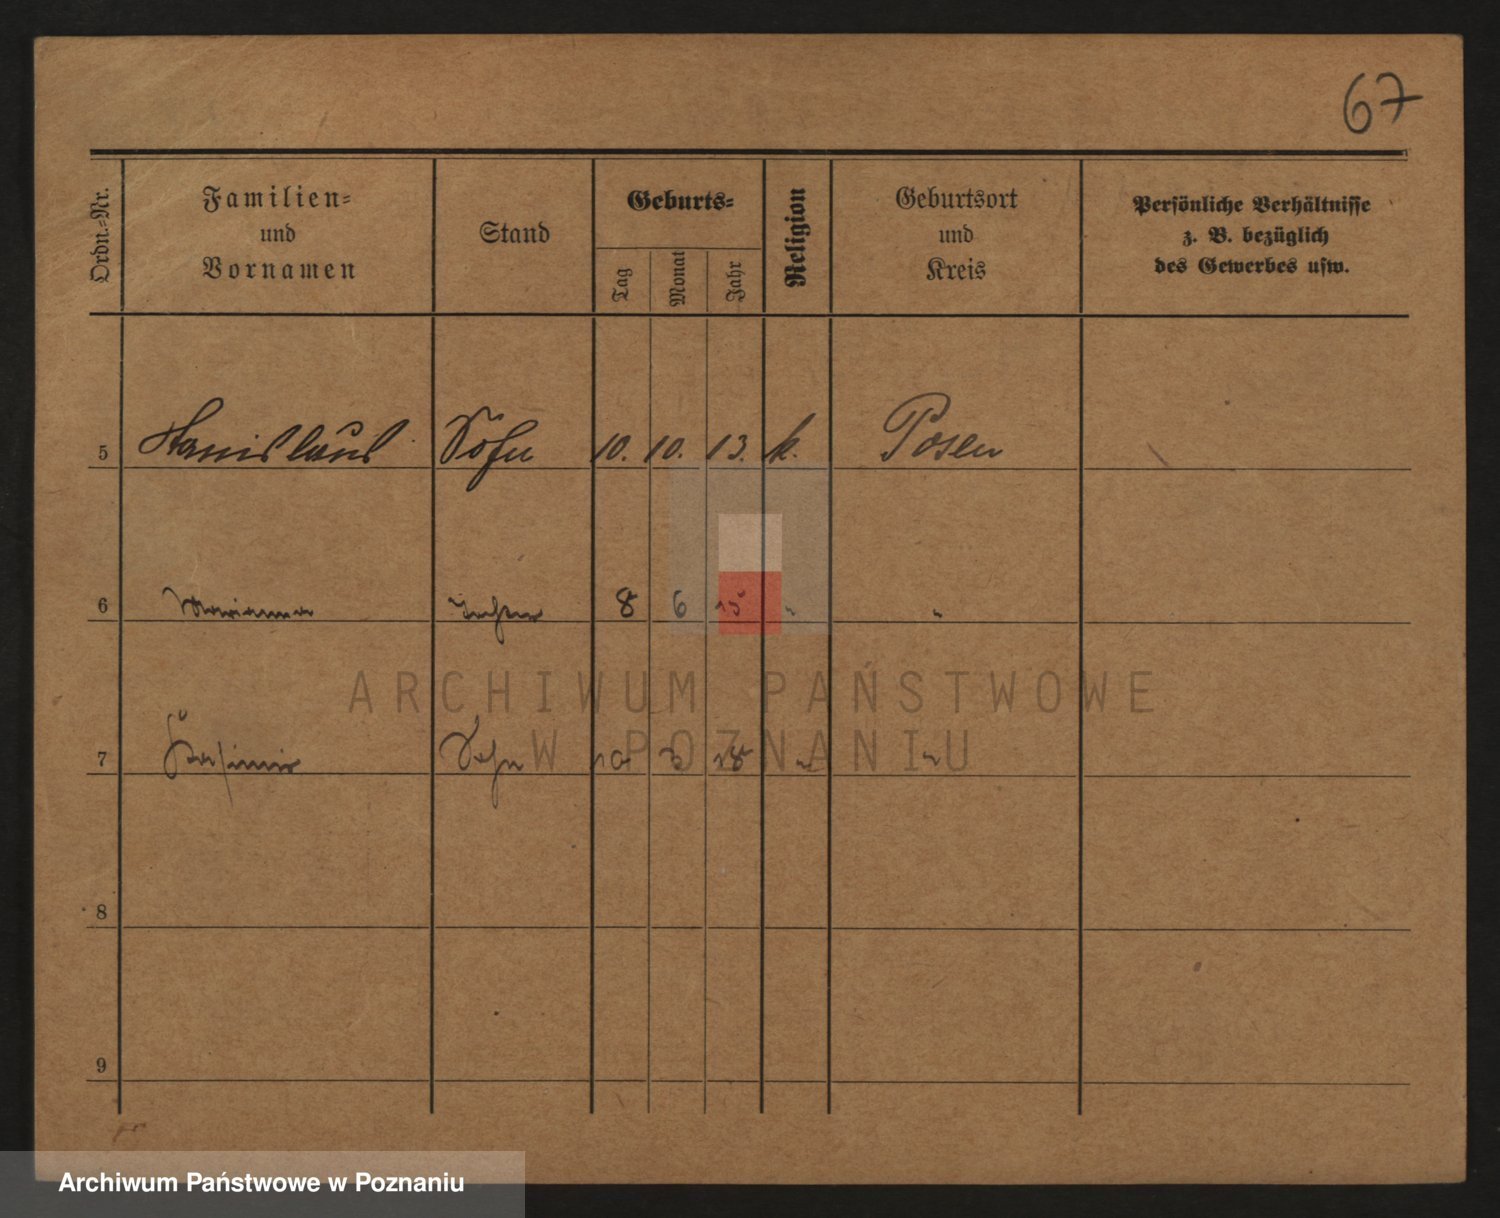 67
Ordn.=Nr.
Familien=
und
Vornamen
Stand
Geburts=
Tag
Monat
Jahr
Religion
Geburtsort
und
Kreis
Persönliche Verhältnisse
z. B. bezüglich
des Gewerbes usw.
5 Stanislaus Sohn 10. 10. 13. k. Posen
6 Marianna Tochter 8 6 15 " "
ARCHIWUM PAŃSTWOWE
W POZNANIU
7 Kasimir Sohn 10 3 18 " "
8
9
Archiwum Państwowe w Poznaniu